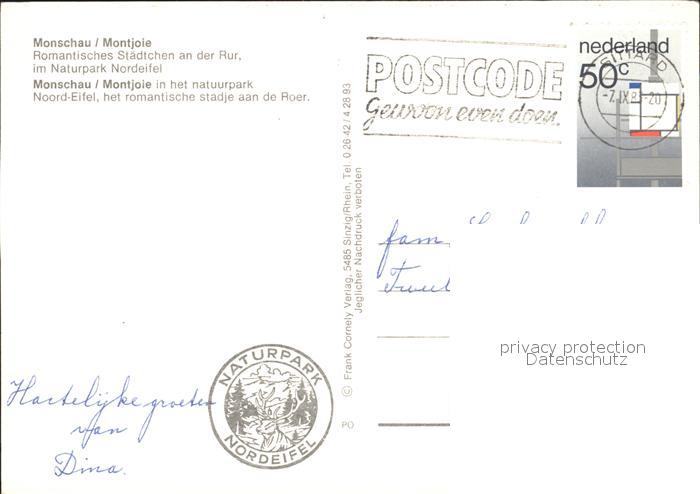 Monschau / Montjoie
Romantisches Städtchen an der Rur,
im Naturpark Nordeifel
Monschau / Montjoie in het natuurpark
Noord-Eifel, het romantische stadje aan de Roer.
Hartelijke groeten
van
Dina.
NATURPARK
NORDEIFEL
© Frank Cornely Verlag, 5485 Sinzig/Rhein, Tel. 0 26 42 / 4 28 93
Jeglicher Nachdruck verboten
PO
POSTCODE
gewoon even doen.
nederland
50c
SITTARD
-7.IX.83-20
fam
privacy protection
Datenschutz